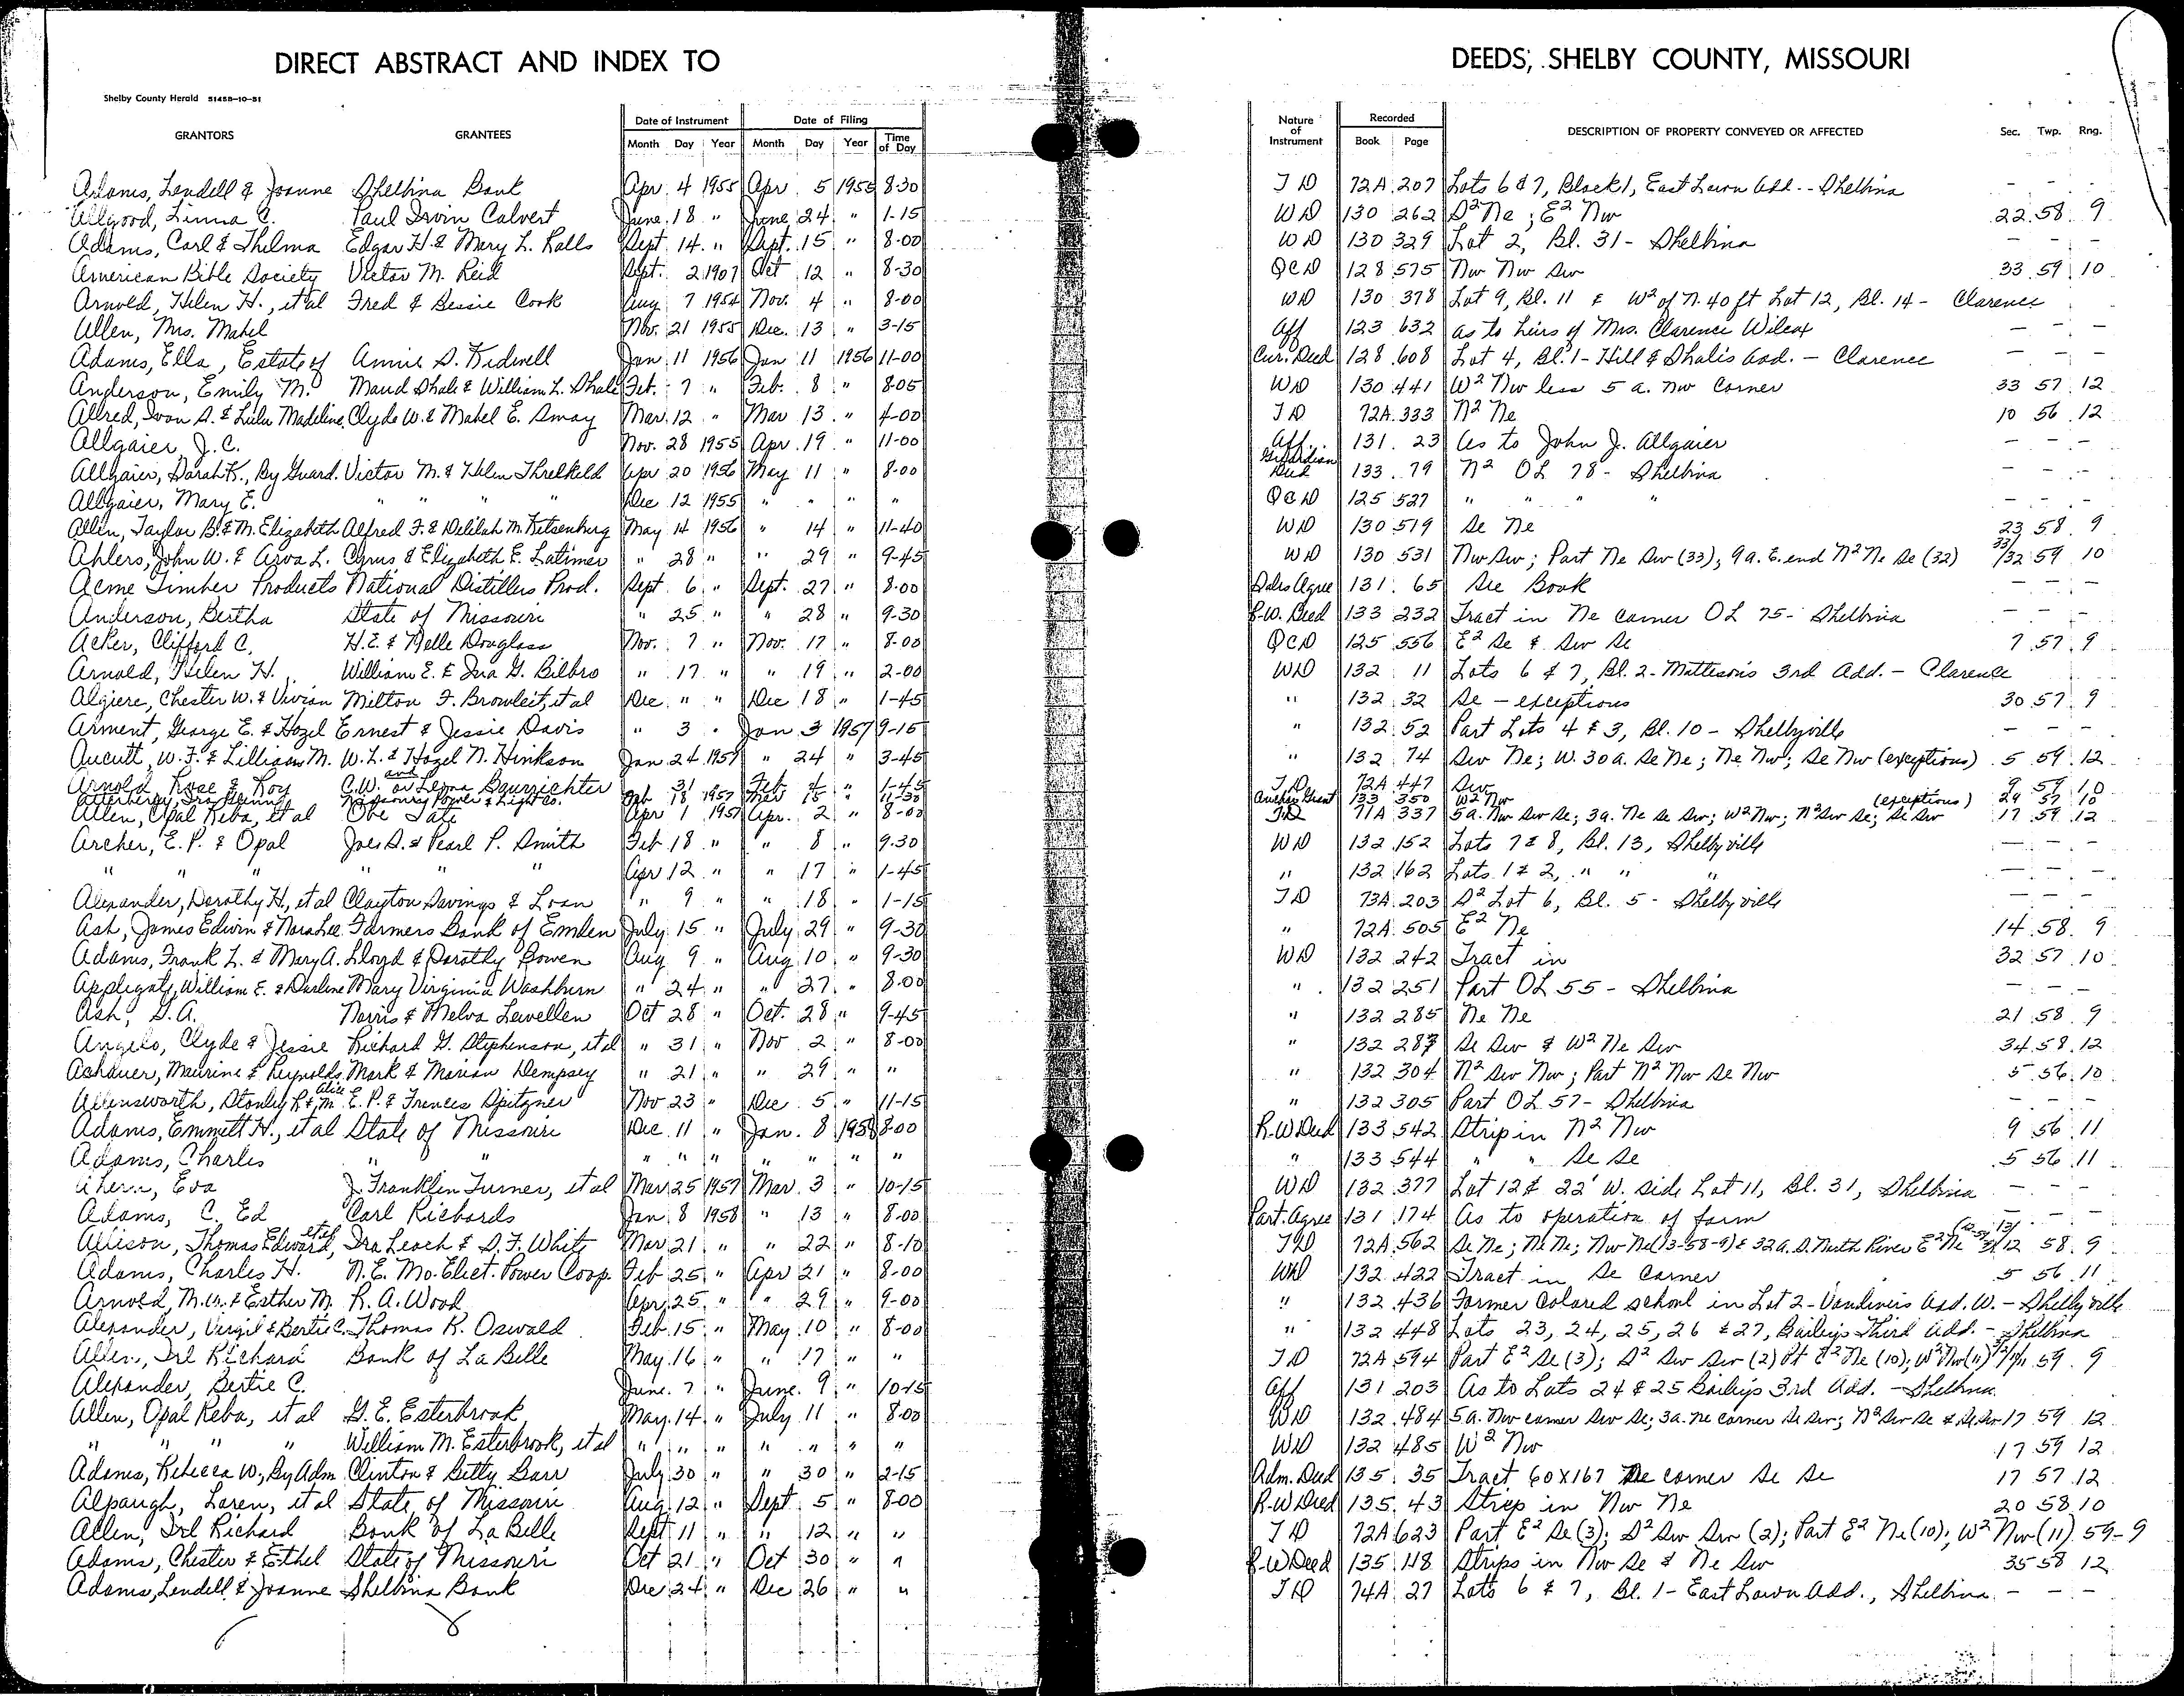 DIRECT ABSTRACT AND INDEX TO DEEDS, SHELBY COUNTY, MISSOURI
Shelby County Herald 51458-10-51
GRANTORS GRANTEES Date of Instrument Month Day Year Date of Filing Month Day Year Time of Day Nature of Instrument Recorded Book Page DESCRIPTION OF PROPERTY CONVEYED OR AFFECTED Sec. Twp. Rng.
Adams, Lendell & Joanne Shelbina Bank Apr. 4 1955 Apr. 5 1955 8-30 TD 72A 207 Lots 6 & 7, Block 1, East Lawn Add. - Shelbina - - -
Allgood, Linna C. Paul Irvin Calvert June 18 " June 24 " 1-15 WD 130 262 S2 Ne; E2 Nw 22 58 9
Adams, Carl & Thelma Edgar H. & Mary L. Ralls Sept. 14 " Sept. 15 " 8-00 WD 130 329 Lot 2, Bl. 31 - Shelbina - - -
American Bible Society Victor M. Reid Sept. 2 1907 Oct 12 " 8-30 QCD 128 575 Nw Nw Sw 33 59 10
Arnold, Helen H., et al Fred & Bessie Cook Aug 7 1954 Nov. 4 " 8-00 WD 130 378 Lot 9, Bl. 11 & W2 of N. 40 ft Lot 12, Bl. 14 - Clarence - - -
Allen, Mrs. Mabel Nov. 21 1955 Dec. 13 " 3-15 Aff 123 632 As to heirs of Mrs. Clarence Wilcox - - -
Adams, Ella, Estate of Annie S. Kidwell Jan 11 1956 Jan 11 1956 11-00 Cur. Deed 128 608 Lot 4, Bl. 1 - Hill & Shale's Add. - Clarence - - -
Anderson, Emily M. Maud Shale & William L. Shale Feb. 7 " Feb. 8 " 8-05 WD 130 441 W2 Nw less 5 a. Nw corner 33 57 12
Allred, Ivon S. & Lulu Madeline Clyde W. & Mabel E. Smay Mar. 12 " Mar 13 " 4-00 TD 72A 333 N2 Ne 10 56 12
Allgaier, J. C. Nov. 28 1955 Apr. 19 " 11-00 Aff. 131 23 As to John J. Allgaier - - -
Allgaier, Sarah K., By Guard. Victor M. & Helen Threlkeld Apr 20 1956 May 11 " 8-00 Guardian Deed 133 79 N2 OL 78 - Shelbina - - -
Allgaier, Mary E. " " " Dec 12 1955 " " " " QCD 125 527 " " " " - - -
Allen, Taylor B. & M. Elizabeth Alfred F. & Delilah M. Kitsenburg May 14 1956 " 14 " 11-40 WD 130 519 Se Ne 23 58 9
Ahlers, John W. & Arva L. Cyrus & Elizabeth E. Latimer " 28 " " 29 " 9-45 WD 130 531 Nw Sw; Part Ne Sw (33); 9 a. E. end N2 Ne Se (32) 33/32 59 10
Acme Timber Products National Distillers Prod. Sept. 6 " Sept. 27 " 8-00 Sales Agree 131 65 See Book - - -
Anderson, Bertha State of Missouri " 25 " " 28 " 9-30 R.W. Deed 133 232 Tract in Ne corner OL 75 - Shelbina - - -
Acker, Clifford C. H. E. & Nelle Douglass Nov. 7 " Nov. 17 " 8-00 QCD 125 556 E2 Se & Sw Se 7 57 9
Arnold, Helen H. William E. & Ina G. Bilbro " 17 " " 19 " 2-00 WD 132 11 Lots 6 & 7, Bl. 2 - Matteson's 3rd Add. - Clarence
Algiere, Chester W. & Vivian Milton F. Browleit, et al Dec. " " Dec 18 " 1-45 " 132 32 Se - exceptions 30 57 9
Arment, George E. & Hazel Ernest & Jessie Davis " 3 " Jan 3 1957 9-15 " 132 52 Part Lots 4 & 3, Bl. 10 - Shelbyville - - -
Aucutt, W. F. & Lillian M. W. L. & Hazel N. Hinkson Jan 24 1957 " 24 " 3-45 " 132 74 Sw Ne; W. 30 a. Se Ne; Ne Nw; Se Nw (exceptions) 5 59 12
Arnold, Rose & Roy C. W. and or Leona Baurichter " 31 " Feb. 4 " 1-45 TD 72A 447 Sw 9 59 10
Missouri Power & Light Co. Feb 18 1957 Mar 15 " 11-30 Anchor Grant 133 350 W2 Nw 29 57 10
Allen, Opal Reba, et al Obe Tate Apr 1 1957 Apr. 2 " 8-00 TD 71A 337 5 a. Nw Sw Se; 3 a. Ne Se Sw; W2 Nw; N2 Sw Se; Se Sw (exceptions) 17 59 12
Archer, E. P. & Opal Joe S. & Pearl P. Smith Feb 18 " " 8 " 9-30 WD 132 152 Lots 7 & 8, Bl. 13, Shelbyville - - -
" " " " " " Apr 12 " " 17 " 1-45 " 132 162 Lots 1 & 2, " " " - - -
Alexander, Dorothy H., et al Clayton Savings & Loan " 9 " " 18 " 1-15 TD 73A 203 S2 Lot 6, Bl. 5 - Shelbyville - - -
Ash, James Edwin & Nora Lee Farmers Bank of Emden July 15 " July 29 " 9-30 " 72A 505 E2 Ne 14 58 9
Adams, Frank L. & Mary A. Lloyd & Dorothy Bowen Aug 9 " Aug 10 " 9-30 WD 132 242 Tract in 32 57 10
Applegate, William E. & Darlene Mary Virginia Washburn " 24 " " 27 " 8-00 " 132 251 Part OL 55 - Shelbina - - -
Ash, S. A. Norris & Melva Lewellen Oct 28 " Oct. 28 " 9-45 " 132 285 Ne Ne 21 58 9
Angelo, Clyde & Jessie Richard G. Stephenson, et al " 31 " Nov 2 " 8-00 " 132 287 Se Sw & W2 Ne Sw 34 58 12
Achauer, Maurine & Reynolds Mark & Marian Dempsey " 21 " " 29 " " " 132 304 N2 Sw Nw; Part N2 Nw Se Nw 5 56 10
Allensworth, Stanley R. & Alice M. E. P. & Frances Spitzner Nov 23 " Dec 5 " 11-15 " 132 305 Part OL 57 - Shelbina - - -
Adams, Emmett H., et al State of Missouri Dec. 11 " Jan. 8 1958 8-00 R.W Deed 133 542 Strip in N2 Nw 9 56 11
Adams, Charles " " " " " " " " " " 133 544 " " Se Se 5 56 11
Ahern, Eva J. Franklin Turner, et al Mar 25 1957 Mar. 3 " 10-15 WD 132 377 Lot 12 & 22' W. side Lot 11, Bl. 31, Shelbina - - -
Adams, C. Ed Carl Richards Jan 8 1958 " 13 " 8-00 Part. Agree 131 174 As to operation of farm - - -
Allison, Thomas Edward, et al Ira Leach & S. F. White Mar 21 " " 22 " 8-10 TD 72A 562 Se Ne; Ne Ne; Nw Ne (13-58-9) & 32 a. S. North River E2 Ne 12 58 9
Adams, Charles H. N. E. Mo. Elect. Power Coop. Feb 25 " Apr 21 " 8-00 WD 132 422 Tract in Se corner 5 56 11
Arnold, M. W. & Esther M. R. A. Wood Apr. 25 " " 29 " 9-00 " 132 436 Former Colored school in Lot 2 - Vandiver's Add. W. - Shelbyville
Alexander, Vergil & Bertie C. Thomas R. Oswald Feb. 15 " May 10 " 8-00 " 132 448 Lots 23, 24, 25, 26 & 27, Bailey's Third Add. - Shelbina
Allen, Irl Richard Bank of La Belle May 16 " " 17 " " TD 72A 594 Part E2 Se (3); S2 Sw Sw (2) Pt E2 Ne (10); W2 Nw (11) 59 9
Alexander, Bertie C. June 7 " June 9 " 10-15 Aff 131 203 As to Lots 24 & 25 Bailey's 3rd Add. - Shelbina
Allen, Opal Reba, et al G. E. Esterbrook May 14 " July 11 " 8-00 WD 132 484 5 a. Nw corner Sw Se; 3 a. Ne corner Se Sw; N2 Sw Se & Se Sw 17 59 12
" " " " William M. Esterbrook, et al " " " " " " " WD 132 485 W2 Nw 17 59 12
Adams, Rebecca W., By Adm. Clinton & Betty Barr July 30 " " 30 " 2-15 Adm. Deed 135 35 Tract 60 x 167 Ne corner Se Se 17 57 12
Alpaugh, Loren, et al State of Missouri Aug. 12 " Sept 5 " 8-00 R.W Deed 135 43 Strip in Nw Ne 20 58 10
Allen, Irl Richard Bank of La Belle Sept 11 " " 12 " " TD 72A 623 Part E2 Se (3); S2 Sw Sw (2); Part E2 Ne (10); W2 Nw (11) 59-9
Adams, Chester & Ethel State of Missouri Oct 21 " Oct 30 " " R.W Deed 135 118 Strips in Nw Se & Ne Sw 35 58 12
Adams, Lendell & Joanne Shelbina Bank Dec 24 " Dec 26 " " TD 74A 27 Lots 6 & 7, Bl. 1 - East Lawn Add., Shelbina - - -